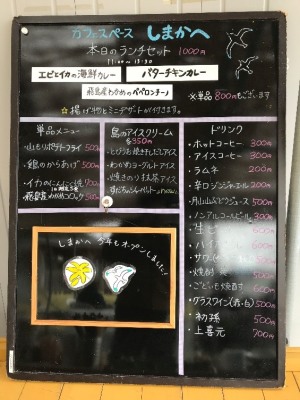 カフェスペース しまかへ
本日のランチセット 1000円
11:00~13:30
エビとイカの海鮮カレー
バターチキンカレー
飛島産わかめのペペロンチーノ
※単品800円もございます
☆揚げ物とミニデザートが付きます。
単品メニュー
・山もりポテトフライ 500円
・鶏のからあげ 500円
・イカの
島のアイスクリーム
各350円
・わかめヨーグルトアイス
・焼きのり抹茶アイス
ドリンク
・ホットコーヒー 300円
・アイスコーヒー 300円
・ラムネ 200円
・辛口ジンジャーエール 200円
・月山山ぶどうジュース 500円
・ノンアルコールビール 300円
・生ビ 600円
・ハイ
・サワ
・焼酎
・ごどいも焼酎
・グラスワイン(赤・白) 500円
・初孫 500円
・上喜元 700円
しまかへ 今年もオープンしました!